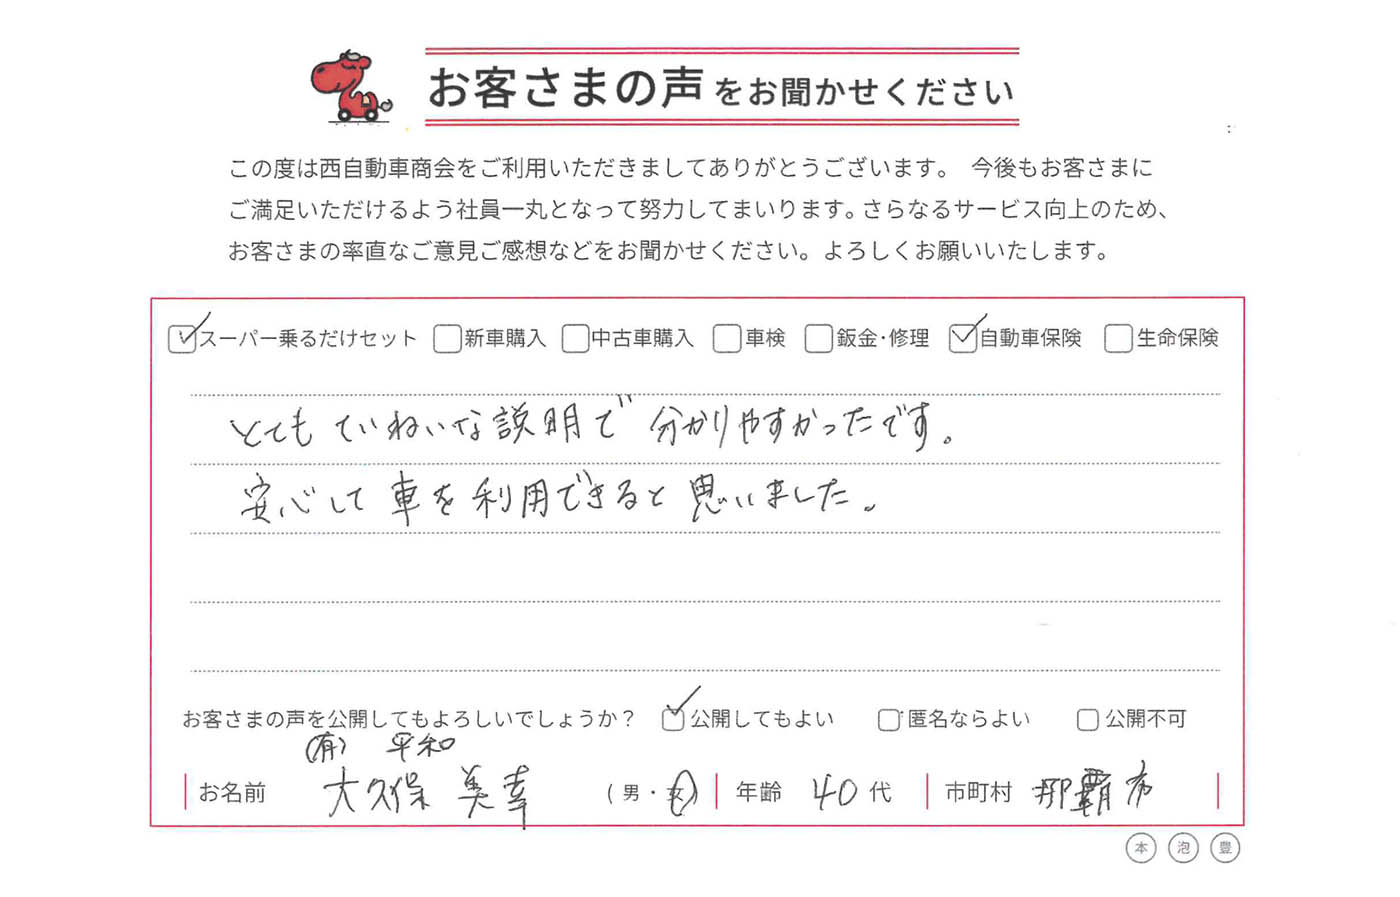 お客さまの声をお聞かせください
この度は西自動車商会をご利用いただきましてありがとうございます。 今後もお客さまに
ご満足いただけるよう社員一丸となって努力してまいります。さらなるサービス向上のため、
お客さまの率直なご意見ご感想などをお聞かせください。よろしくお願いいたします。
スーパー乗るだけセット 新車購入 中古車購入 車検 鈑金・修理 自動車保険 生命保険
とてもていねいな説明で分かりやすかったです。
安心して車を利用できると思いました。
お客さまの声を公開してもよろしいでしょうか？ 公開してもよい 匿名ならよい 公開不可
(有) 平和
お名前 大久保 美幸 (男・女) 年齢 40代 市町村 那覇市
本 泡 豊